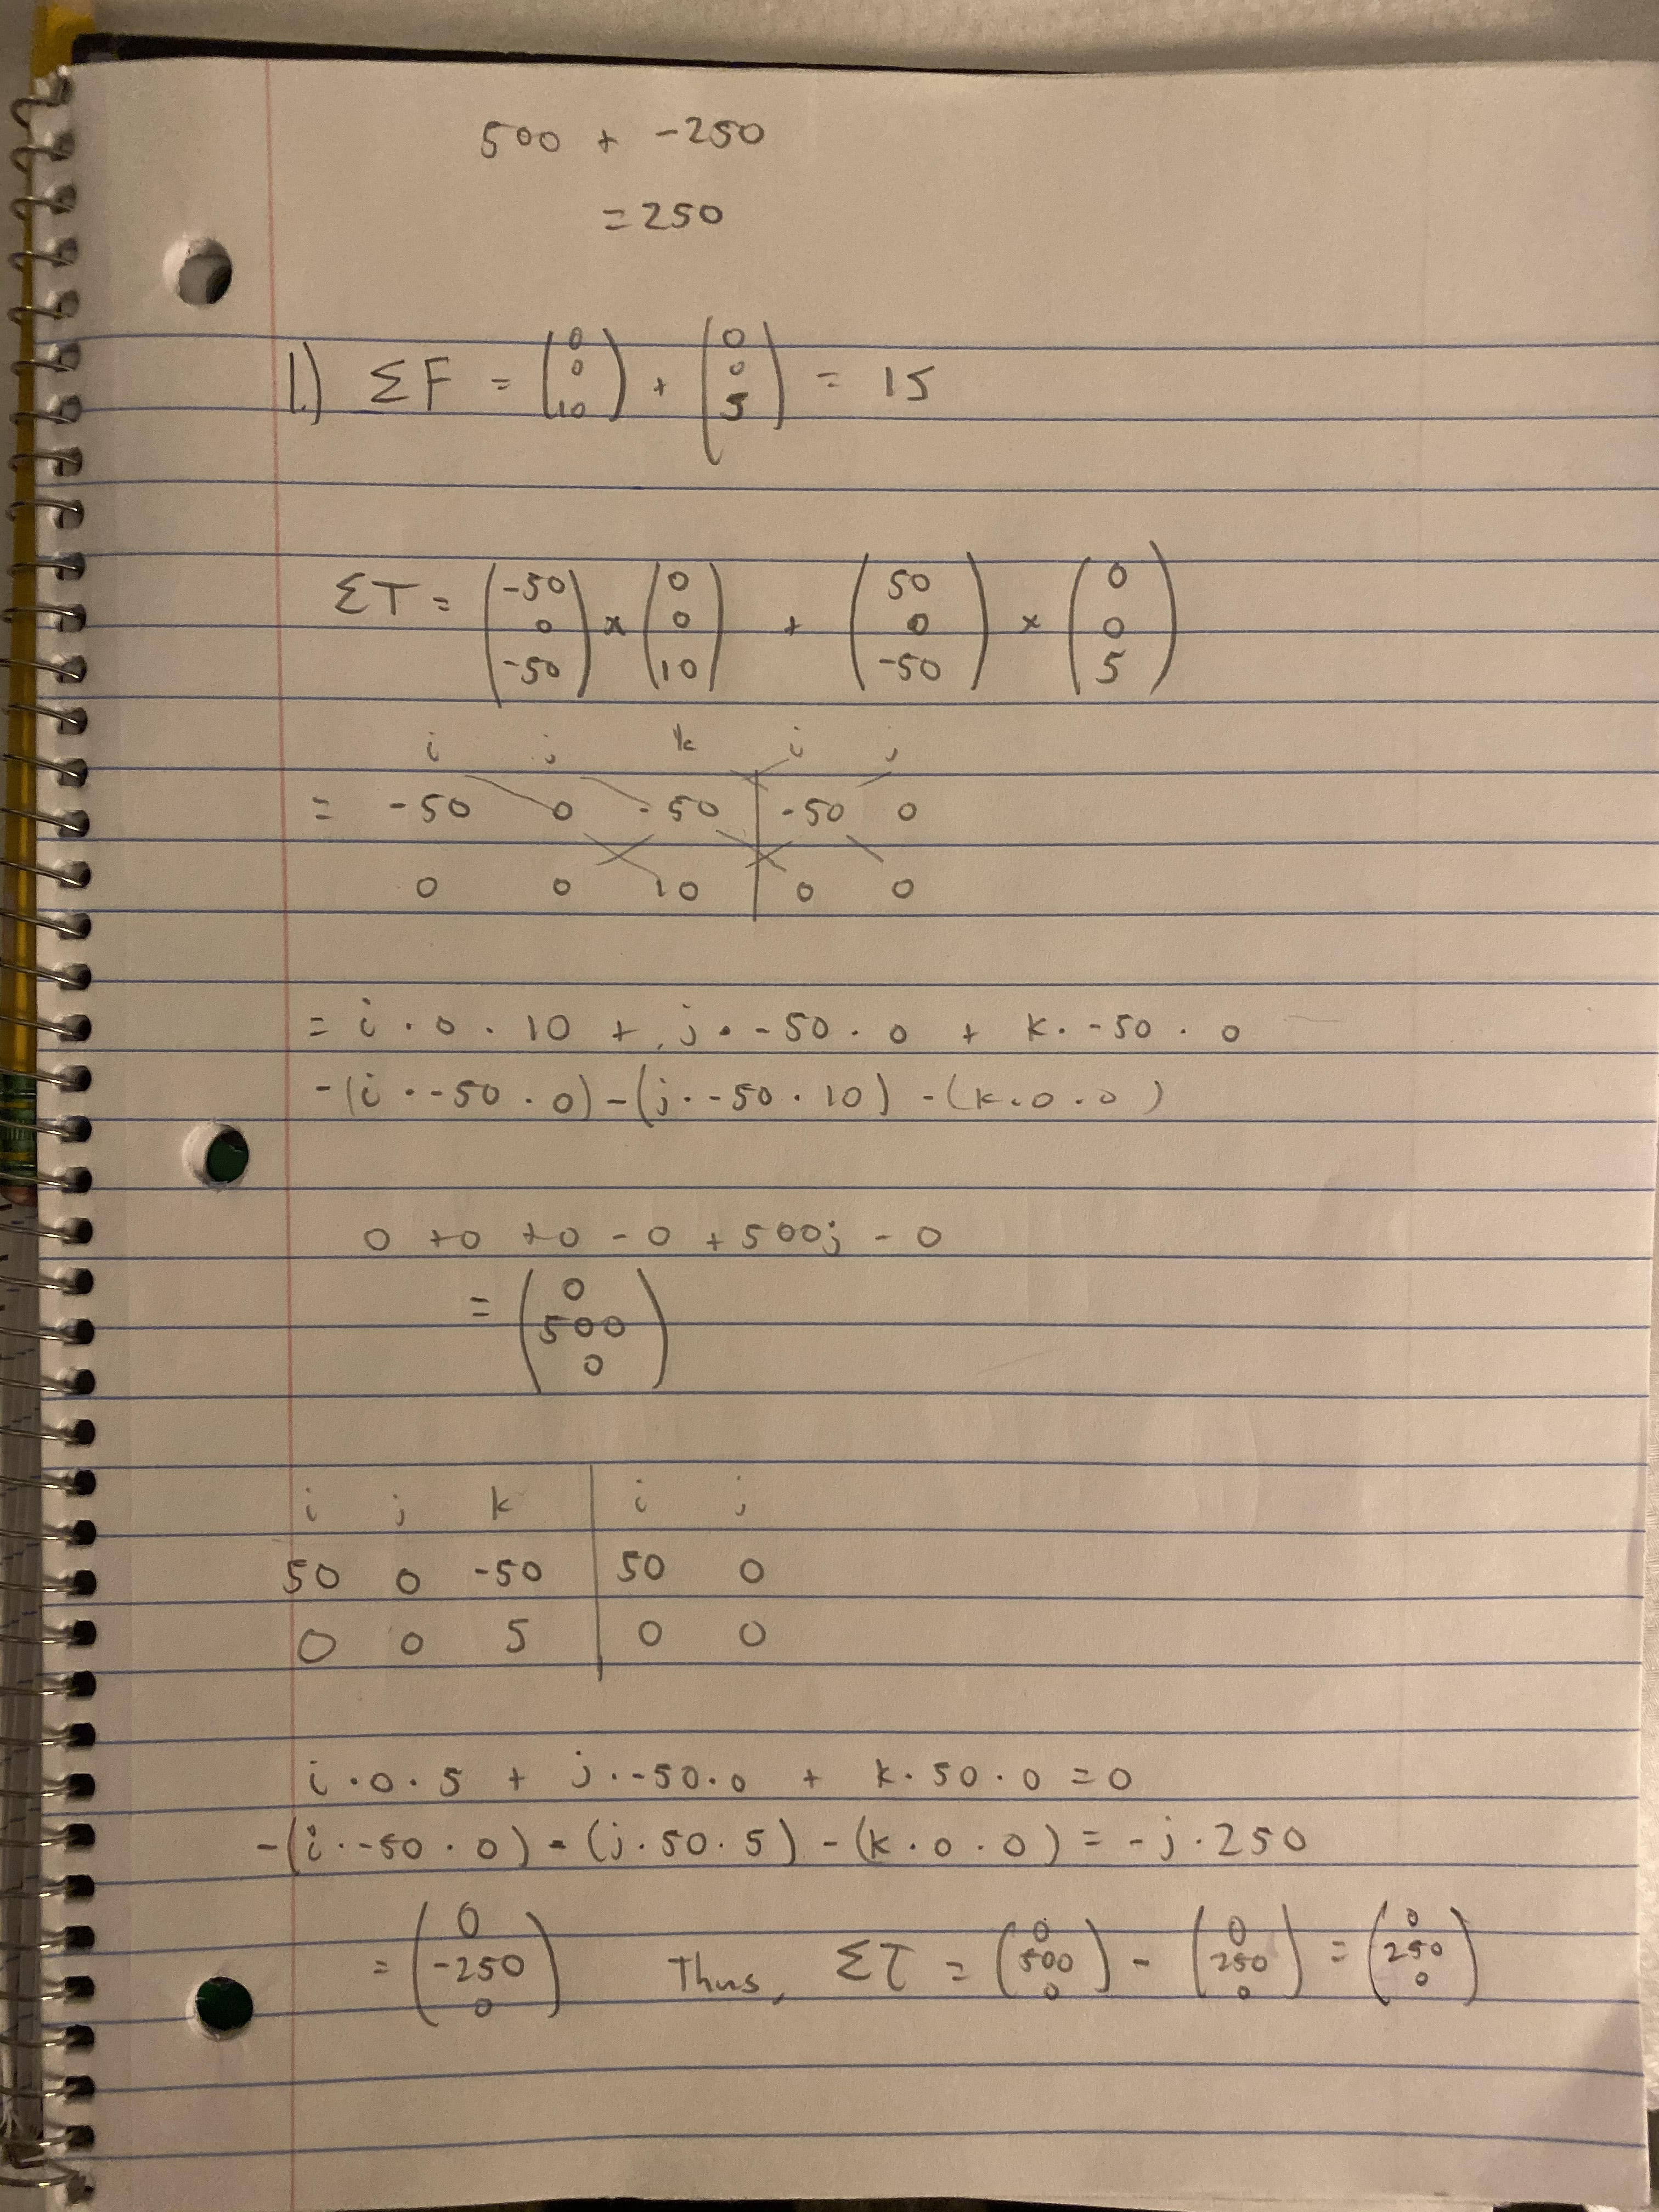 500 + -250
= 250
1.) ΣF = (0 0 10) + (0 0 5) = 15
ΣT = (-50 0 -50) × (0 0 10) + (50 0 -50) × (0 0 5)
i j k i j
= -50 0 -50 | -50 0
0 0 10 | 0 0
= i · 0 · 10 + j · -50 · 0 + k · -50 · 0
-(i · -50 · 0) - (j · -50 · 10) - (k · 0 · 0)
0 + 0 + 0 - 0 + 500j - 0
= (0 500 0)
i j k | i j
50 0 -50 | 50 0
0 0 5 | 0 0
i · 0 · 5 + j · -50 · 0 + k · 50 · 0 = 0
-(i · -50 · 0) - (j · 50 · 5) - (k · 0 · 0) = -j · 250
= (0 -250 0) Thus, Στ = (0 500 0) - (0 250 0) = (0 250 0)